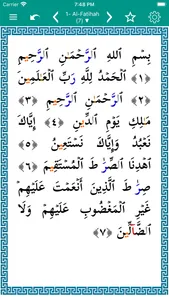 Carrier 7:48 PM
1- Al-Fatihah
(7) ▼
بِسْمِ ٱللَّهِ ٱلرَّحْمَـٰنِ ٱلرَّحِيمِ
﴿١﴾ ٱلْحَمْدُ لِلَّهِ رَبِّ ٱلْعَـٰلَمِينَ
﴿٢﴾ ٱلرَّحْمَـٰنِ ٱلرَّحِيمِ ﴿٣﴾
مَـٰلِكِ يَوْمِ ٱلدِّينِ ﴿٤﴾ إِيَّاكَ
نَعْبُدُ وَإِيَّاكَ نَسْتَعِينُ ﴿٥﴾
ٱهْدِنَا ٱلصِّرَٰطَ ٱلْمُسْتَقِيمَ ﴿٦﴾
صِرَٰطَ ٱلَّذِينَ أَنْعَمْتَ عَلَيْهِمْ
غَيْرِ ٱلْمَغْضُوبِ عَلَيْهِمْ وَلَا
ٱلضَّآلِّينَ ﴿٧﴾